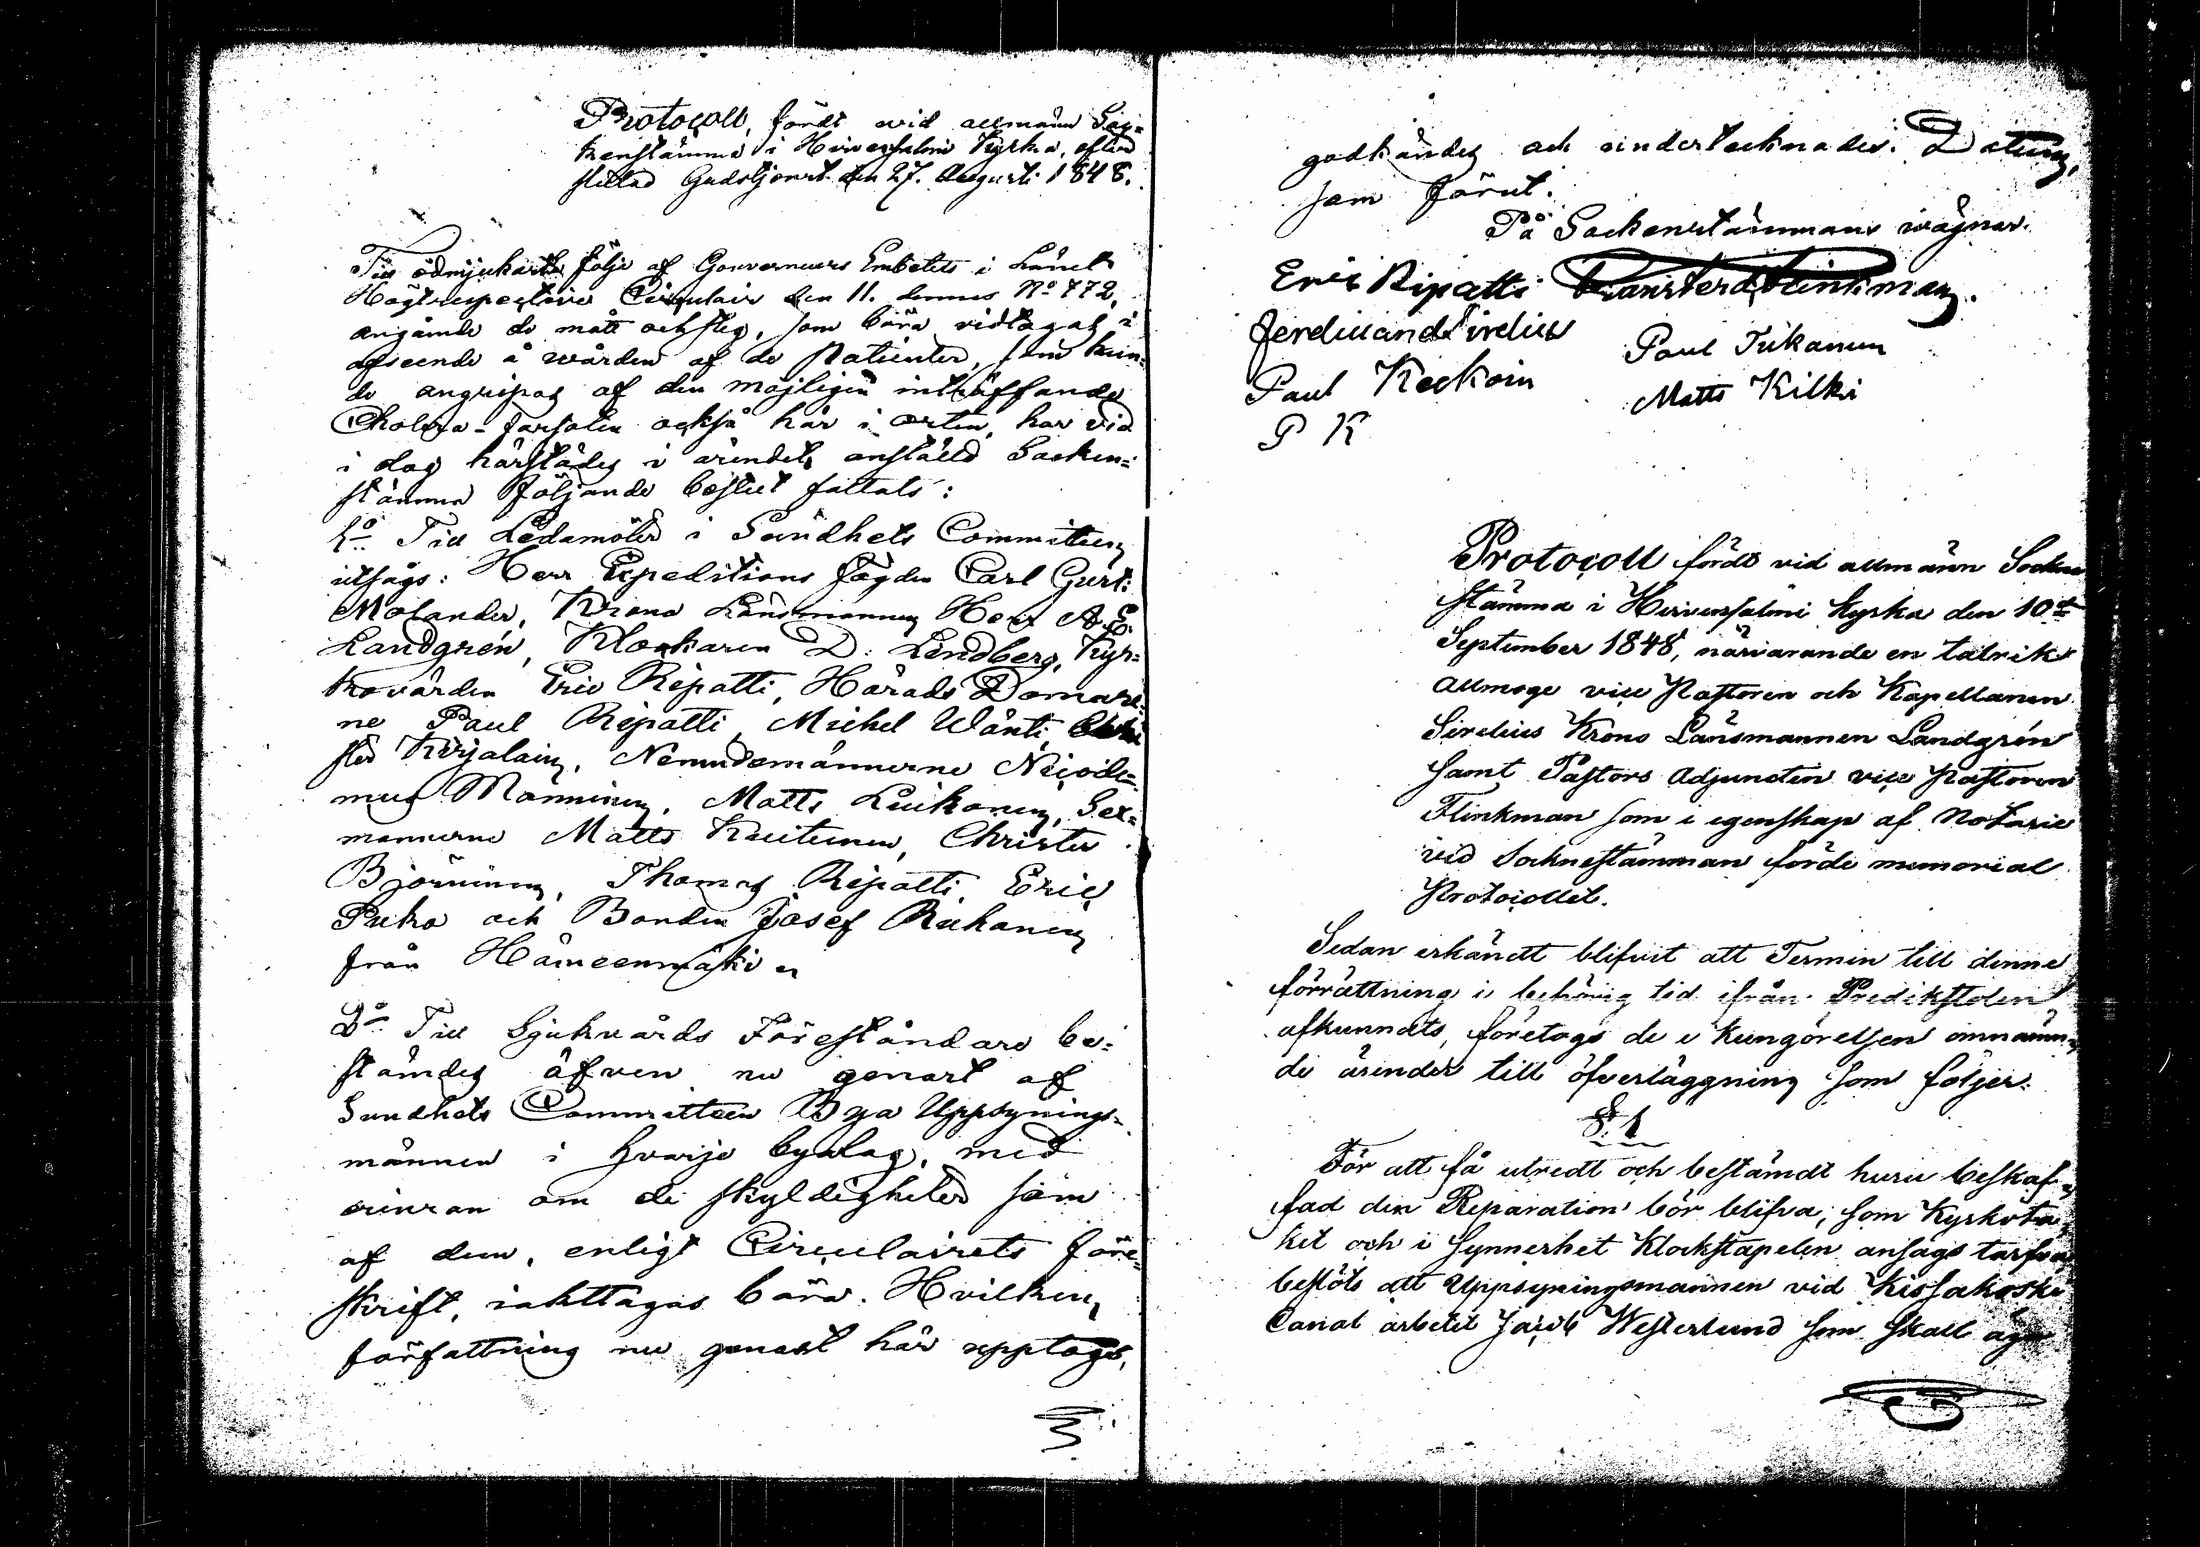 Protocoll, fördt wid allmänn Soc=
kenstämma i Hirvensalmi Kyrka, efter
slutad Gudstjenst den 27. Augusti 1848.
Till ödmjukaste följe af Gouverneurs Embetets i Länet
Högtrespective Circulair den 11. dennes No 772,
angående de mått och steg, som böra vidtagas i
afseende å wården af de Patienter, som kun=
de angripas af den möjligen inträffande
Cholera-farsoten också här i orten, har vid
i dag härstädes i ärendet anställd Socken=
stämma följande beslut fattats:
1o Till Ledamöter i Sundhets Committeen
utsågs: Herr Expeditions Fogden Carl Gust:
Molander, Krono Länsmannen Herr A. E.
Landgrén, Klockaren D. Lindberg, Kyr=
kovärden Eric Ripatti, Härads Domare=
ne Paul Ripatti, Michel Wänti,
Kirjalain, Nämndemännerne Nicode=
mus Manninen, Matts Luikonen, Sex=
männerne Matts Kautunen, Christer
Björninen, Thomas Ripatti, Eric
Puka och Bonden Josef Rukanen
från Hämeenmäki
2o Till Sjukvårds Föreståndare be=
stämdes äfven nu genast af
Sundhets Committeen Bya Uppsynings=
männen i hvarje byalag, med
erinran om de skyldigheter som
af dem, enligt Circulairets före=
skrift, iakttagas böra. Hvilken
författning nu genast här upptogs,
godkändes och undertecknades. Datum,
som förut.
På Sockenstämmans wägnar.
Eric Ripatti Flinkman.
Ferdinand Sirelius Paul Tiikanen
Paul Keckoin Matts Kilki
P K
Protocoll fördt vid allmänn Sockne
stämma i Hirvensalmi kyrka den 10de
September 1848, närvarande en talrik
Allmoge vice Pastoren och Kapellanen
Sirelius Krono Länsmannen Landgrén
samt Pastors Adjuncten vice Pastoren
Flinkman som i egenskap af Notarie
vid Socknestämman förde memorial
Protocollet.
Sedan erkändt blifvit att Termin till denne
förrättning i behörig tid ifrån Predikstolen
afkunnats, företogs de i kungörelsen omnämn=
de ärender till öfverläggning som följer.
§. 1
För att få utredt och bestämdt huru beskaf=
fad den Reparation bör blifva, som Kyrkota=
ket och i synnerhet Klockstapelen ansågs tarfva,
beslöts att Uppsyningsmannen vid Kissakoski
Canal arbetet Jacob Westerlund som skall äga